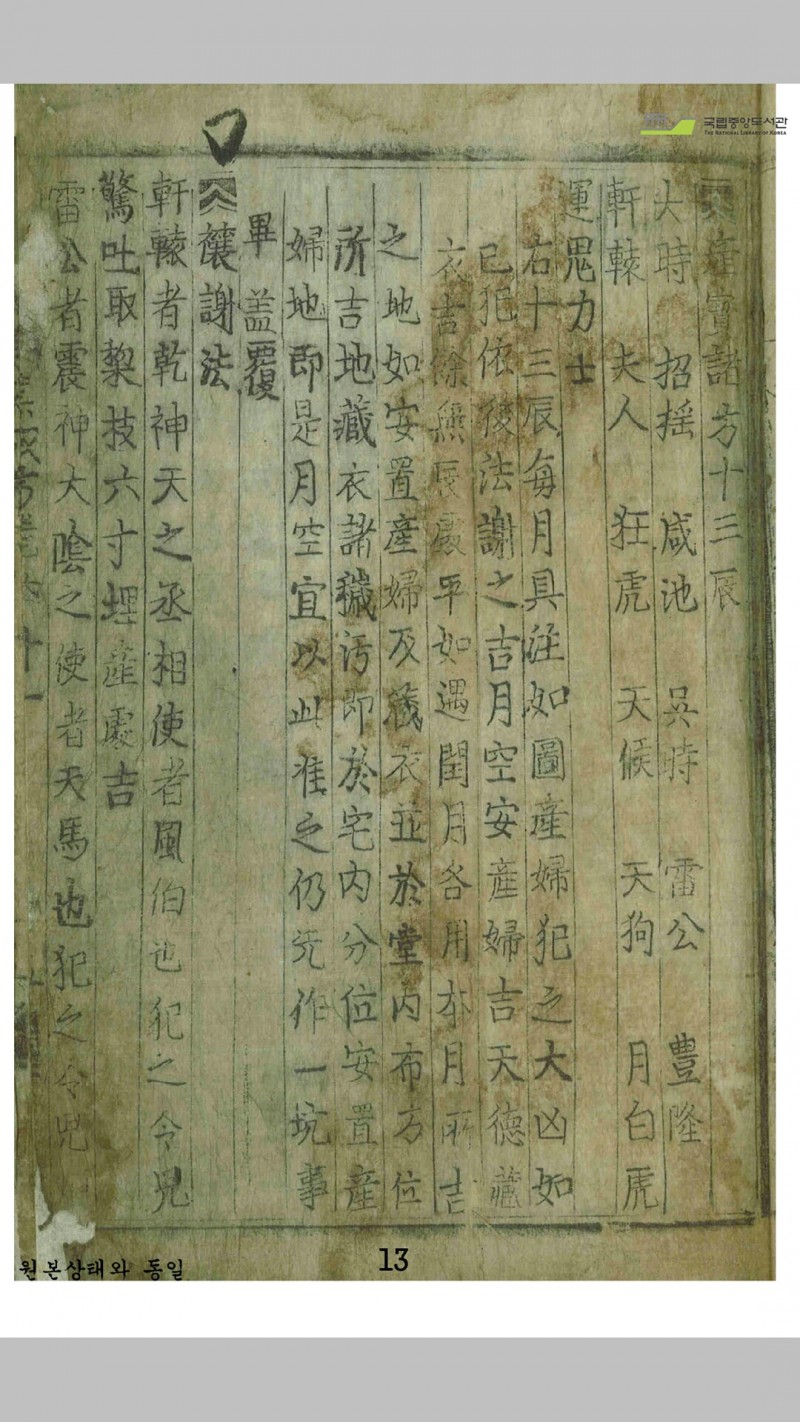 産寶諸方十三辰
大時 招摇 咸池 吳時 雷公 豊隆
軒轅 夫人 狂虎 天候 天狗 月白虎
運鬼力士
右十三辰每月具注如圖產婦犯之大凶如
已犯依後法謝之吉月空安產婦吉天德藏
衣吉餘無辰處平如遇閏月各用本月所吉
之地如安置產婦及藏衣並於堂內布方位
所吉地藏衣諸穢汚即於宅內分位安置產
婦地即是月空宜以此准之仍先作一坑事
畢盖覆
禳謝法
軒轅者乾神天之丞相使者風伯也犯之令兒
驚吐取黎枝六寸埋產處吉
雷公者震神大陰之使者天馬也犯之令兒
국립중앙도서관
THE NATIONAL LIBRARY OF KOREA
원본상태와 동일
13